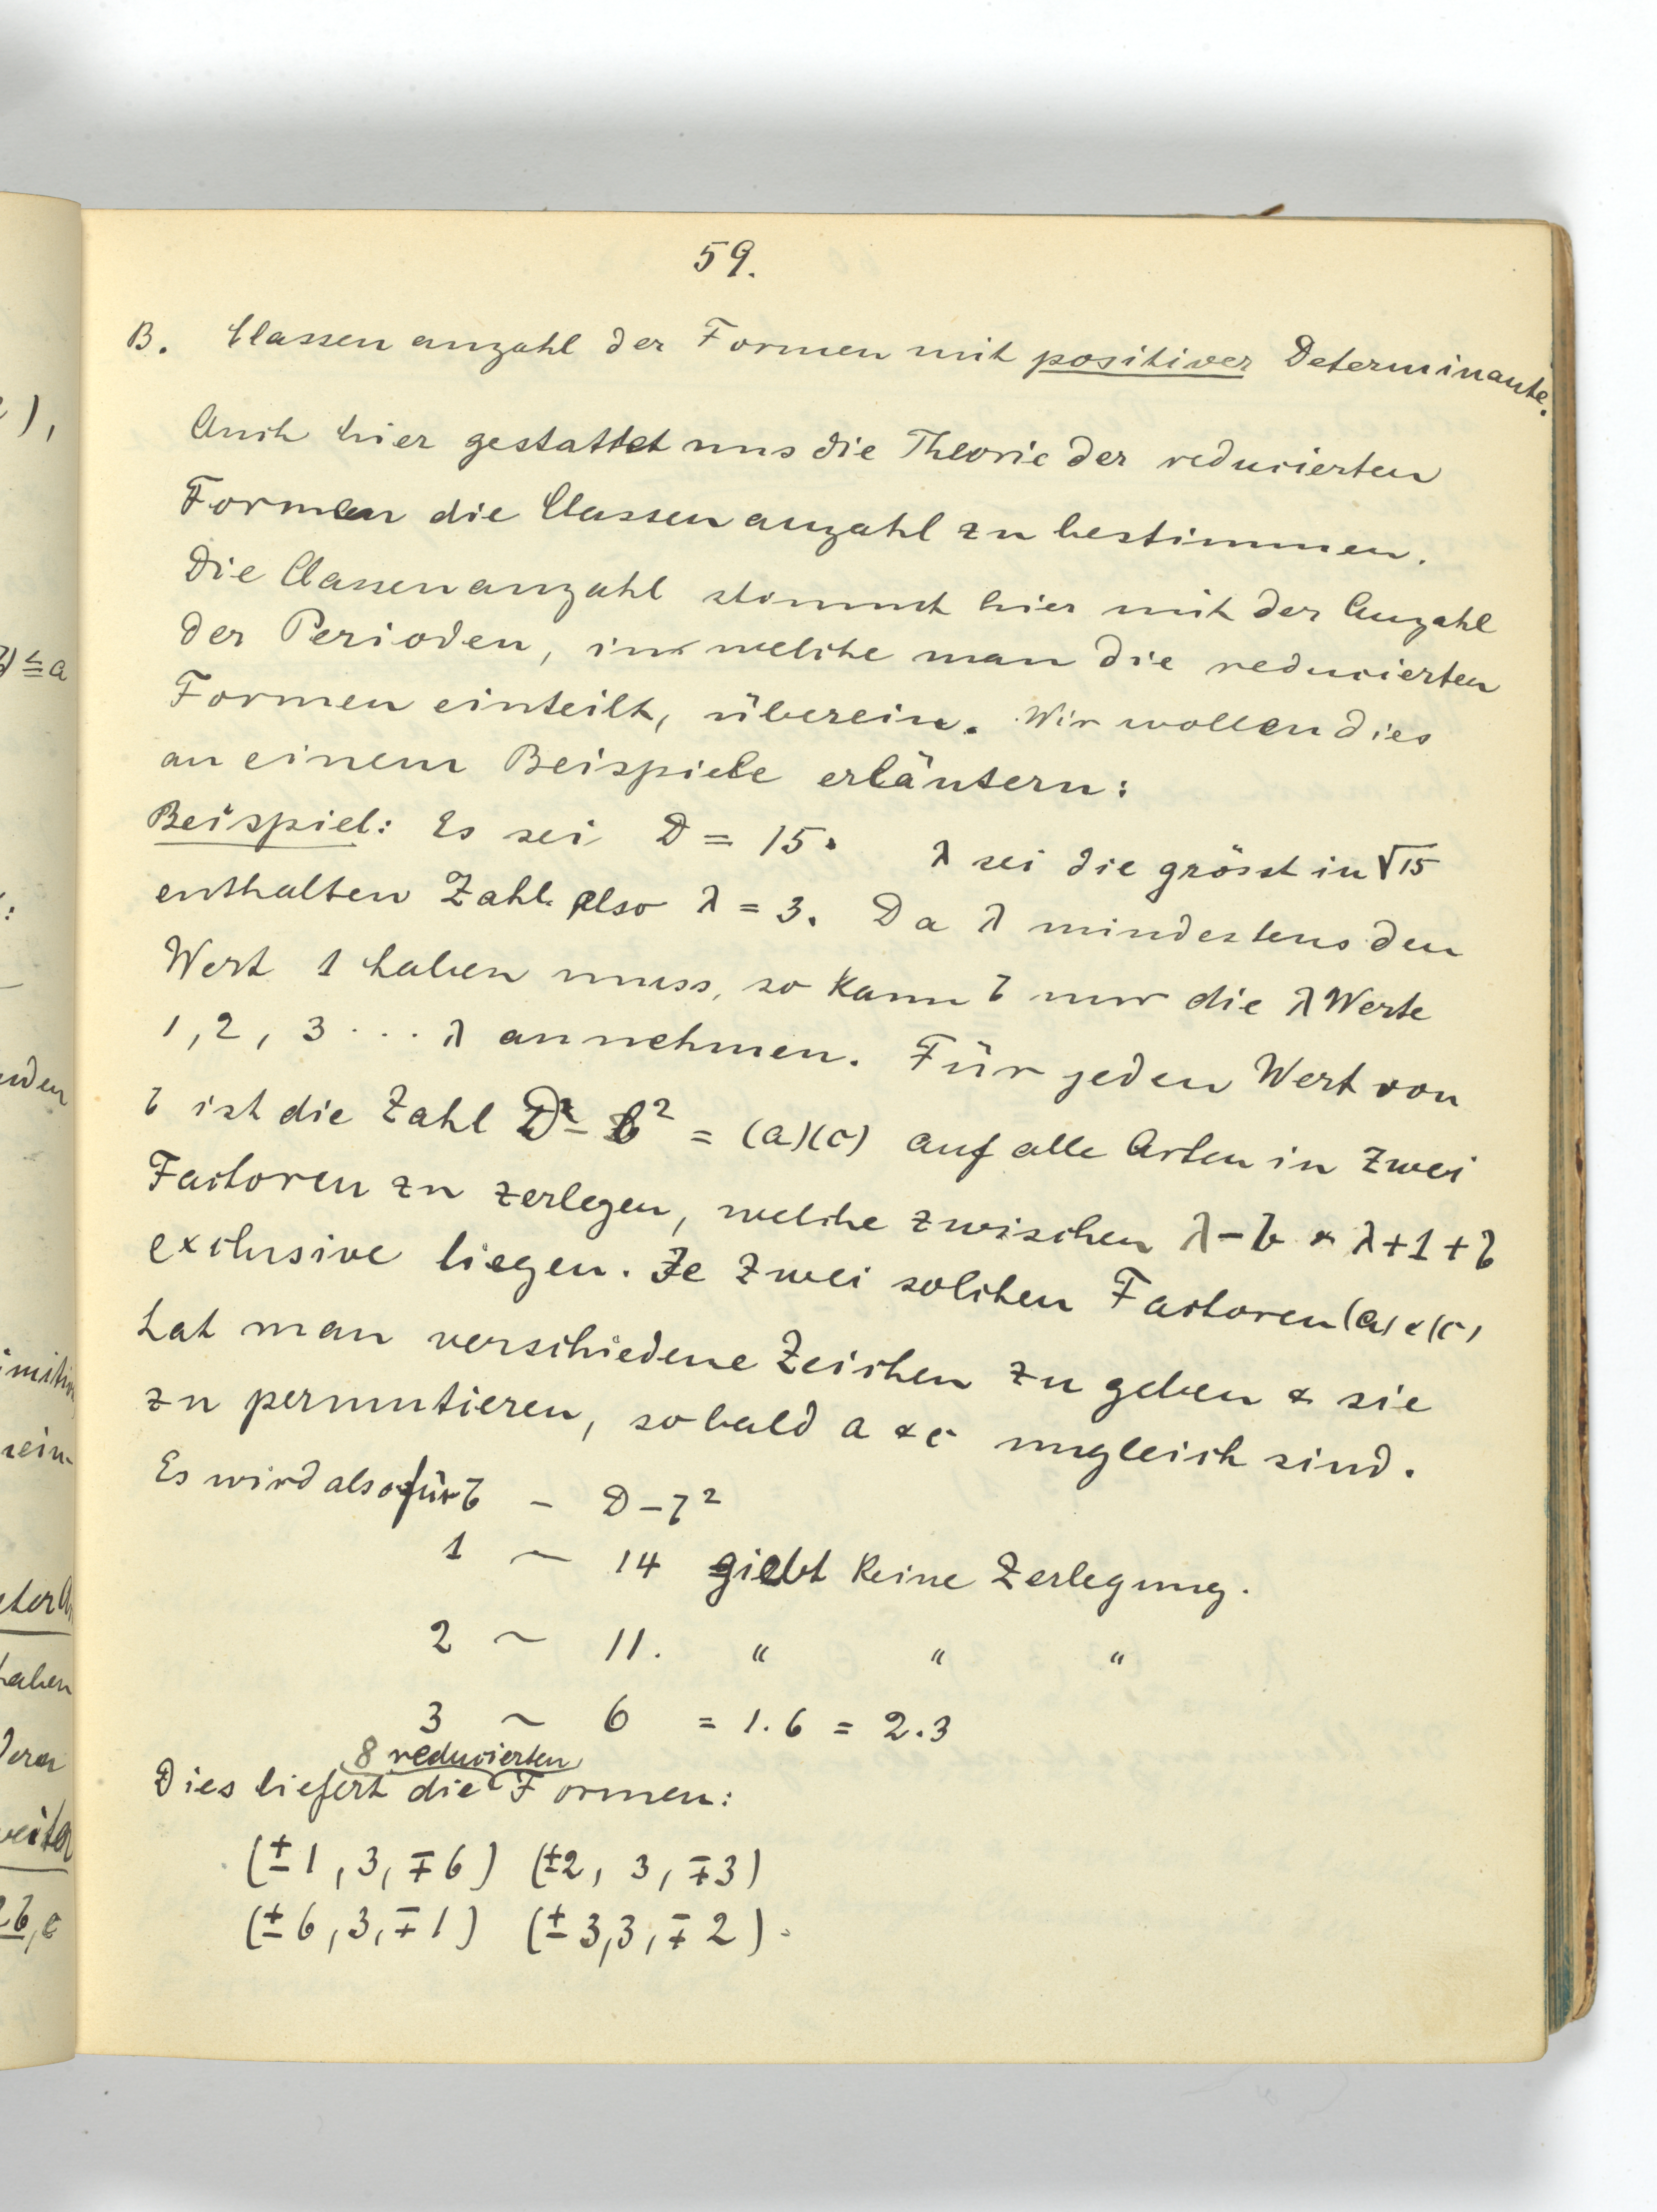 59.
B. Classenanzahl der Formen mit positiver Determinante.
Auch hier gestattet uns die Theorie der reducierten
Formen die Classenanzahl zu bestimmen.
Die Classenanzahl stimmt hier mit der Anzahl
der Perioden, in welche man die reducierten
Formen einteilt, überein. Wir wollen dies
an einem Beispiele erläutern:
Beispiel: Es sei D = 15. λ sei die grösst in √15
enthalten Zahl also λ = 3. Da λ mindestens den
Wert 1 haben muss, so kann b nur die λ Werte
1, 2, 3 ... λ annehmen. Für jeden Wert von
b ist die Zahl D - b² = (a)(c) auf alle Arten in zwei
Factoren zu zerlegen, welche zwischen λ-b & λ+1+b
exclusive liegen. Je zwei solchen Factoren (a) & (c)
hat man verschiedene Zeichen zu geben & sie
zu permutieren, sobald a & c ungleich sind.
Es wird also für b – D-b²
1 ~ 14 giebt keine Zerlegung.
2 ~ 11. " " "
3 ~ 6 = 1.6 = 2.3
8 reducierten
Dies liefert die Formen:
(±1, 3, ∓6) (±2, 3, ∓3)
(±6, 3, ∓1) (±3, 3, ∓2).
),
≦a
:
nden
rein-
haben
weiter
2b, c